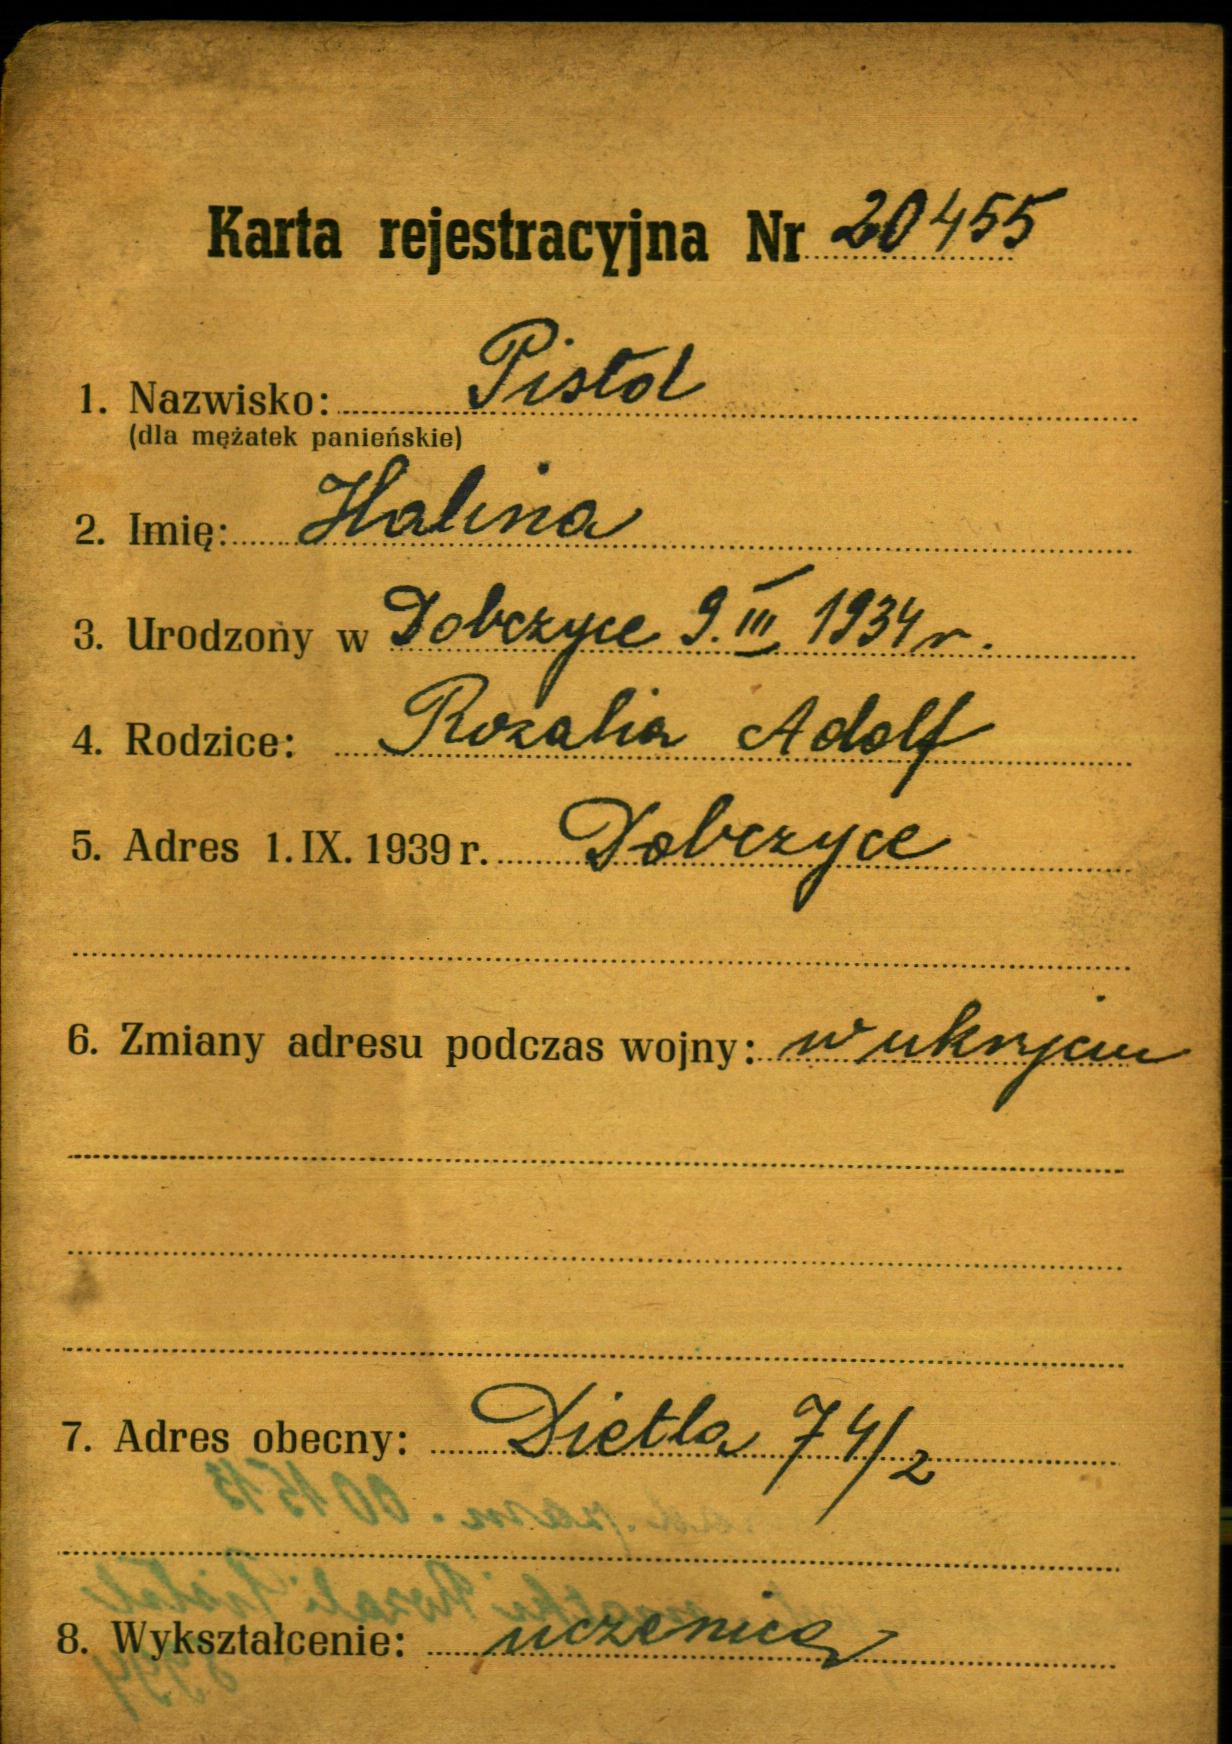 Karta rejestracyjna Nr 20455
1. Nazwisko: Pistol
(dla mężatek panieńskie)
2. Imię: Halina
3. Urodzony w Dobczyce 9.III 1934 r.
4. Rodzice: Rozalia Adolf
5. Adres 1. IX. 1939 r. Dobczyce
6. Zmiany adresu podczas wojny: w ukryciu
7. Adres obecny: Dietla 74/2
8. Wykształcenie: uczenica